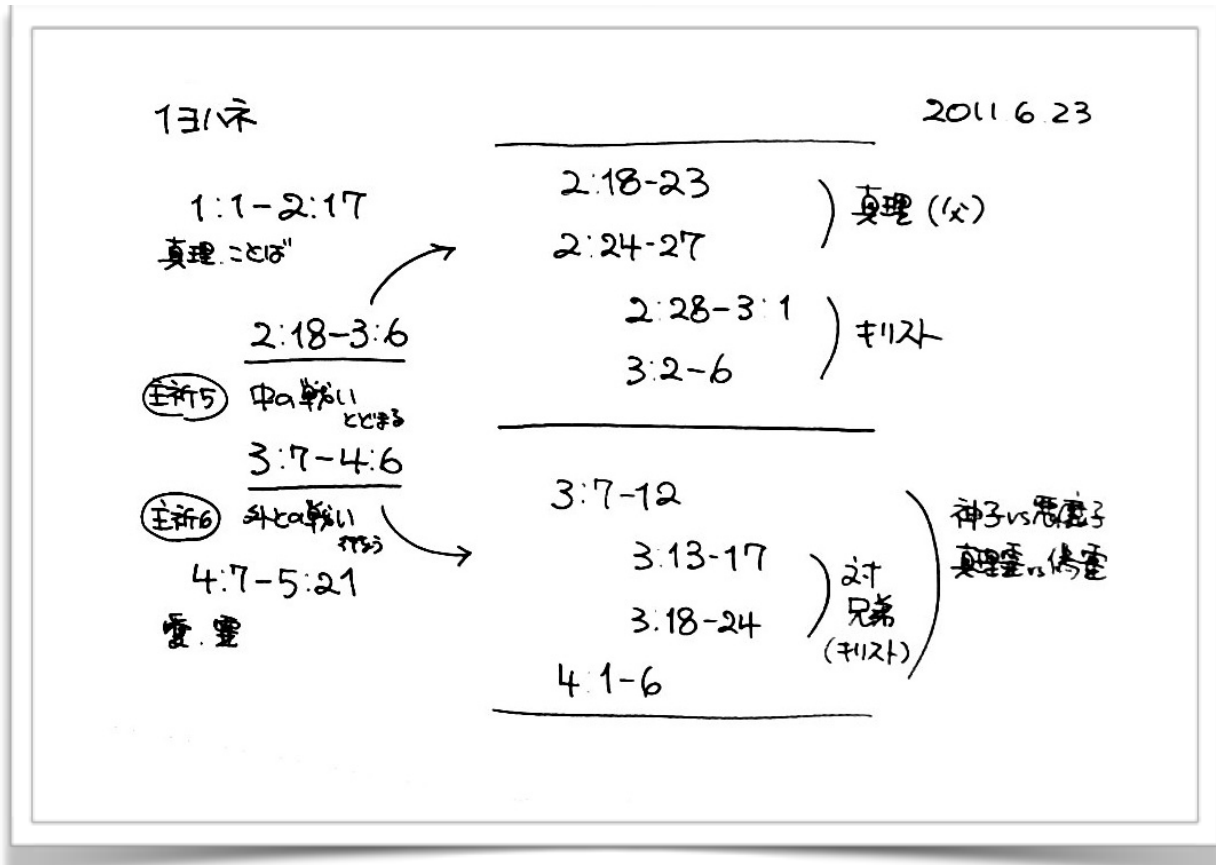 1ヨハネ
2011 6.23
1:1-2:17
真理.ことば
2:18-3:6
主祈5 中の戦い
とどまる
3:7-4:6
主祈6 外との戦い
行なう
4:7-5:21
霊
2:18-23
2:24-27
真理 (父)
2:28-3:1
3:2-6
キリスト
3:7-12
3:13-17
3:18-24
対
兄弟
(キリスト)
4:1-6
神子vs悪魔子
真理霊vs偽霊